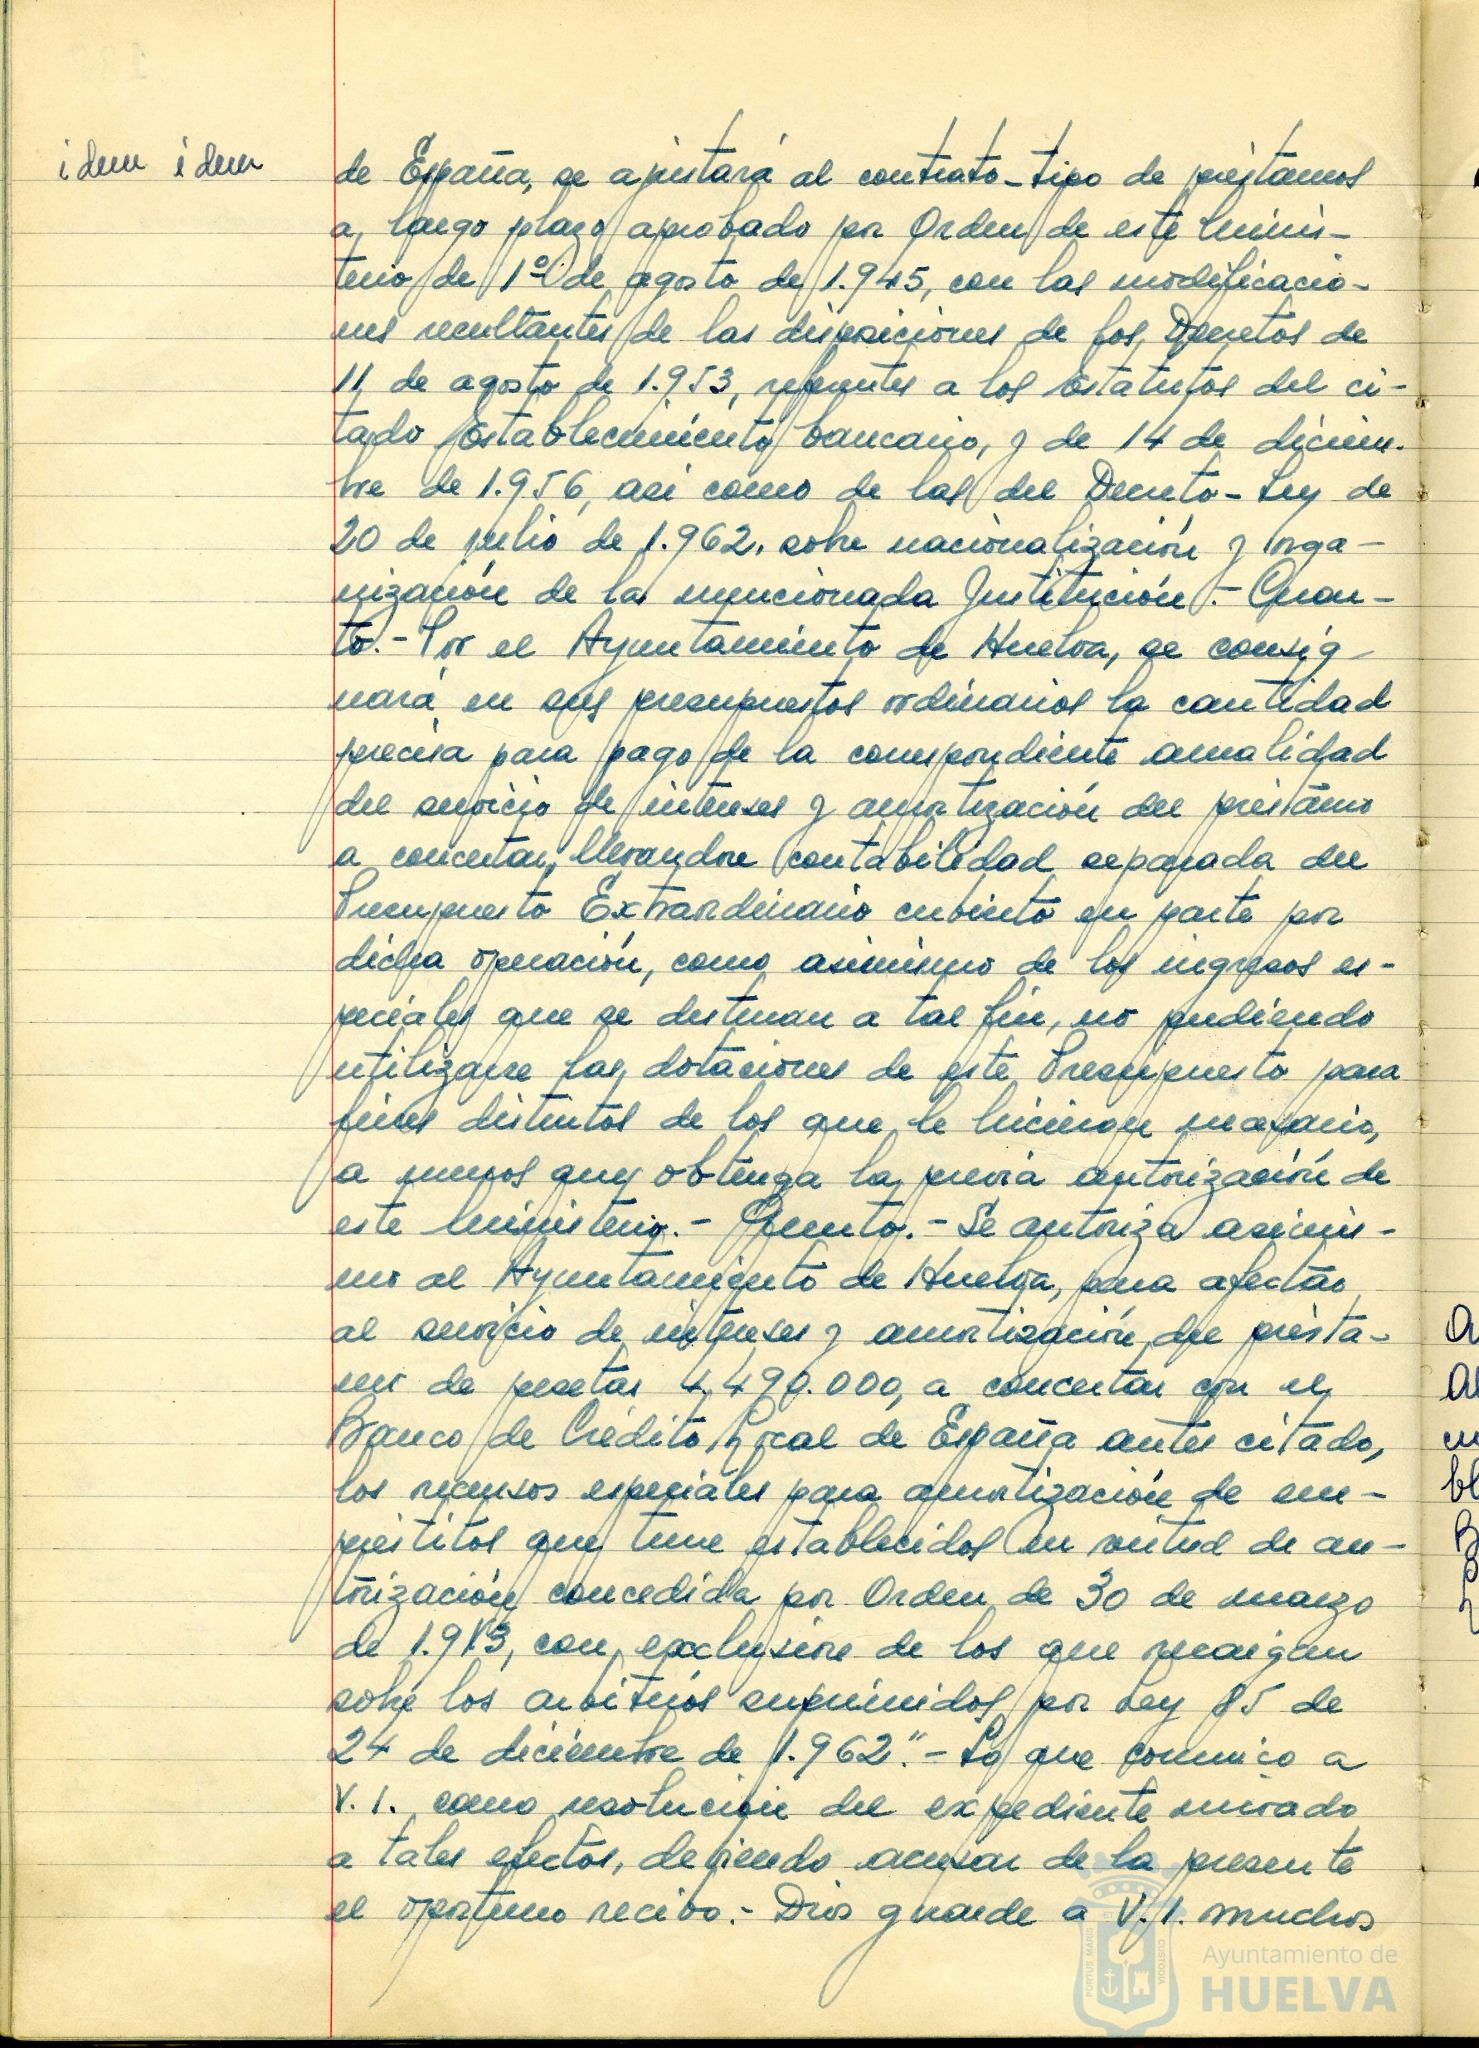 idem idem
de España, se ajustará al contrato-tipo de préstamos
a largo plazo aprobado por Orden de este Minis-
terio de 1º de agosto de 1.945, con las modificacio-
nes resultantes de las disposiciones de los Decretos de
11 de agosto de 1.953, referentes a los Estatutos del ci-
tado Establecimiento bancario, y de 14 de diciem-
bre de 1.956, asi como de las del Decreto-Ley de
20 de julio de 1.962, sobre nacionalización y orga-
nización de la mencionada Institución.- Cuar-
to.- Por el Ayuntamiento de Huelva, se consig-
nará en sus presupuestos ordinarios la cantidad
precisa para pago de la correspondiente anualidad
del servicio de intereses y amortización del préstamo
a concertar, llevandose contabilidad separada del
Presupuesto Extraordinario cubierto en parte por
dicha operación, como asimismo de los ingresos es-
peciales que se destinan a tal fin, no pudiendo
utilizarse las dotaciones de este Presupuesto para
fines distintos de los que le hicieron necesario,
a menos que obtenga la previa autorización de
este Ministerio.- Quinto.- Se autoriza asimis-
mo al Ayuntamiento de Huelva, para afectar
al servicio de intereses y amortización del présta-
mo de pesetas 4.490.000, a concertar con el
Banco de Crédito Local de España antes citado,
los recursos especiales para amortización de em-
préstitos que tiene establecidos en virtud de au-
torización concedida por Orden de 30 de marzo
de 1.9 , con exclusión de los que recaigan
sobre los arbitrios suprimidos por Ley 85 de
24 de diciembre de 1.962".- Lo que comunico a
V.I. como resolución del expediente enviado
a tales efectos, debiendo acusar de la presente
el oportuno recibo.- Dios guarde a V.I. muchos
PORTUS MARIS CUSTODIA
Ayuntamiento de
HUELVA